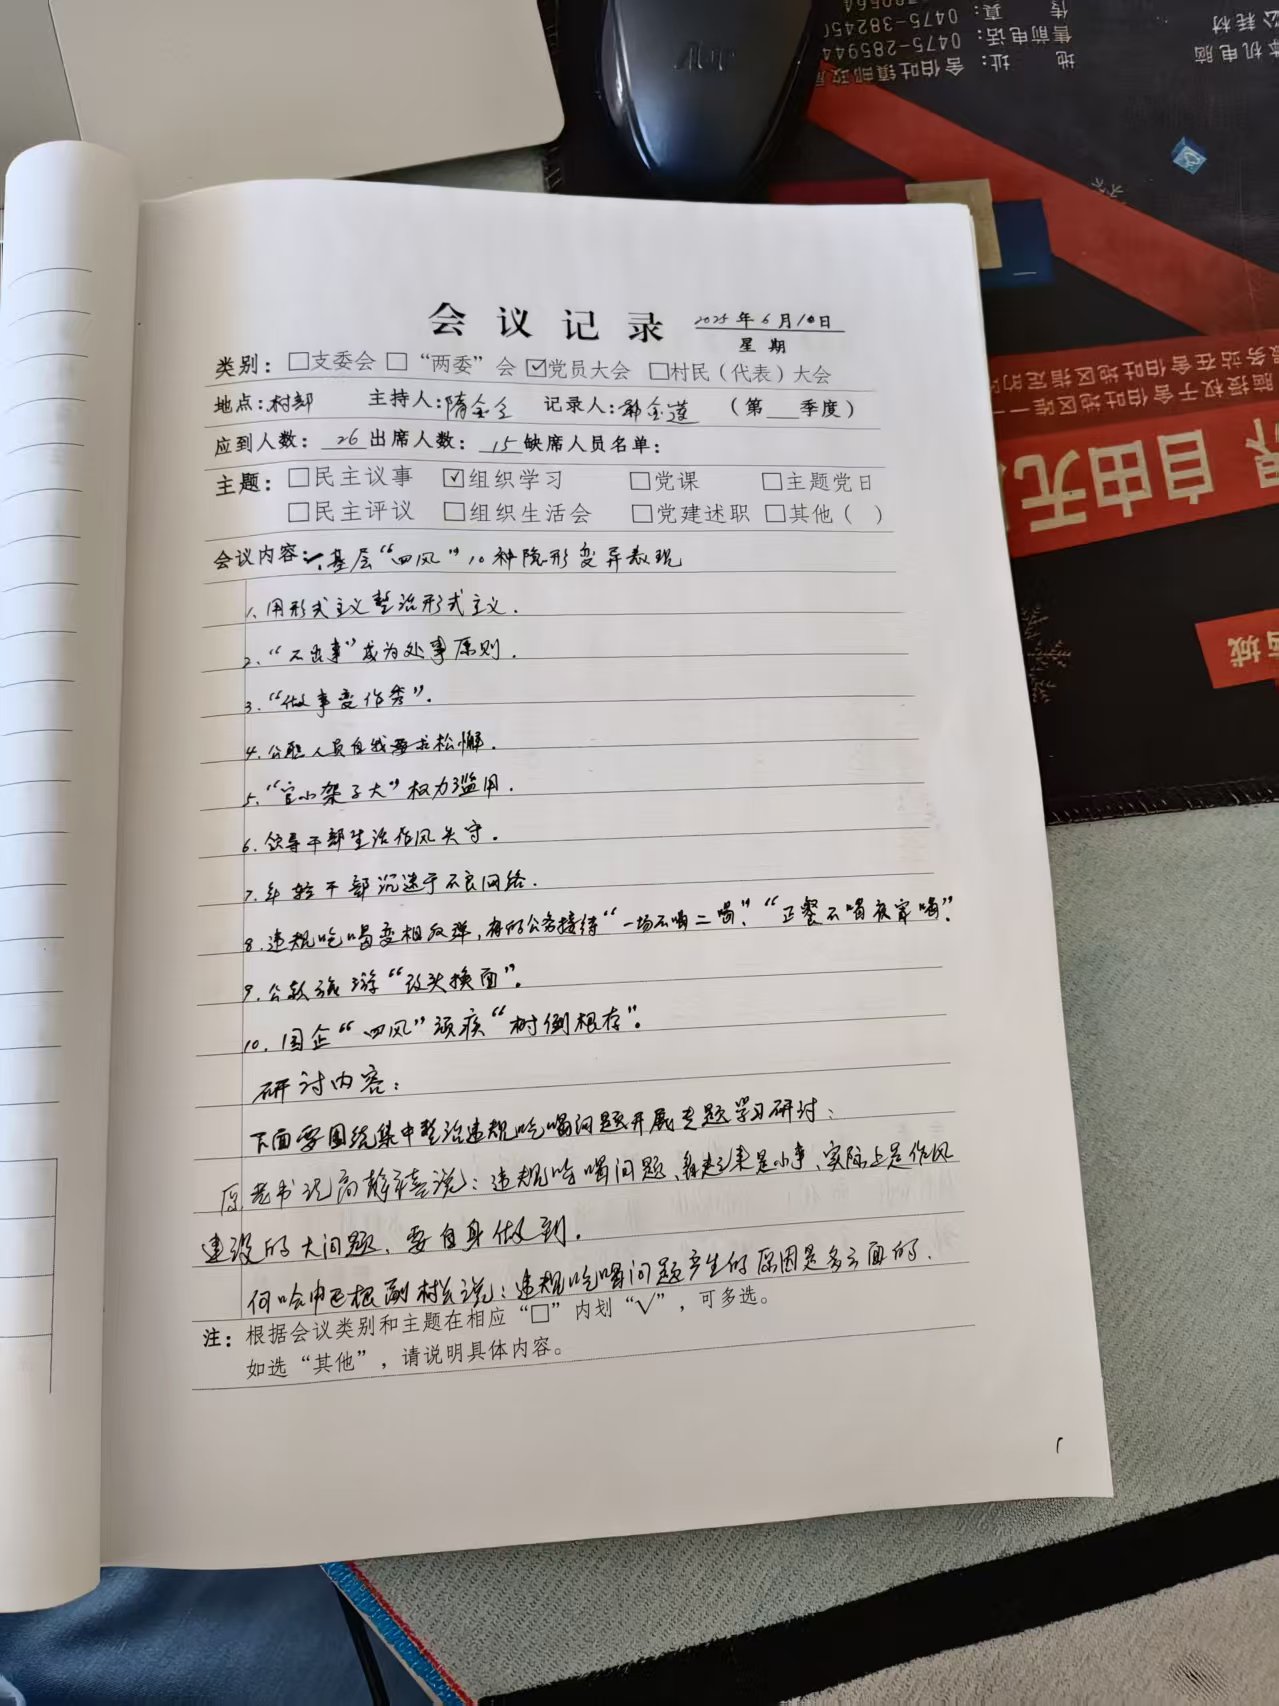 会议记录 2025年6月10日
星期
类别：□支委会 □“两委”会 ☑党员大会 □村民（代表）大会
地点：村部 主持人：隋金 记录人：金莲 （第 季度）
应到人数：26 出席人数：15 缺席人员名单：
主题：□民主议事 ☑组织学习 □党课 □主题党日
□民主评议 □组织生活会 □党建述职 □其他（ ）
会议内容：一、基层“四风”10种隐形变异表现
1、用形式主义整治形式主义．
2、“不出事”成为处事原则．
3．“做事变作秀”．
4．公职人员自我要求松懈．
5、“官小架子大”权力滥用．
6．领导干部生活作风失守．
7．年轻干部沉迷于不良网络．
8．违规吃喝变相反弹，有的公务接待“一场不喝二喝”、“正餐不喝夜宵喝”．
9．公款旅游“改头换面”。
10．国企“四风”顽疾“树倒根存”。
研讨内容：
下面要围绕集中整治违规吃喝问题开展专题学习研讨：
原老书记高说：违规吃喝问题、看起来是小事、实际上是作风
建设的大问题、要自身做到．
何哈申巴根副村长说：违规吃喝问题产生的原因是多方面的．
注：根据会议类别和主题在相应“□”内划“√”，可多选。
如选“其他”，请说明具体内容。
传 真：0475-38245
售前电话：0475-285944
地 址：舍伯吐镇邮政
本机电脑
公耗材
服务站在舍伯吐地区指定的
脑授权于舍伯吐地区唯一
自由无
城